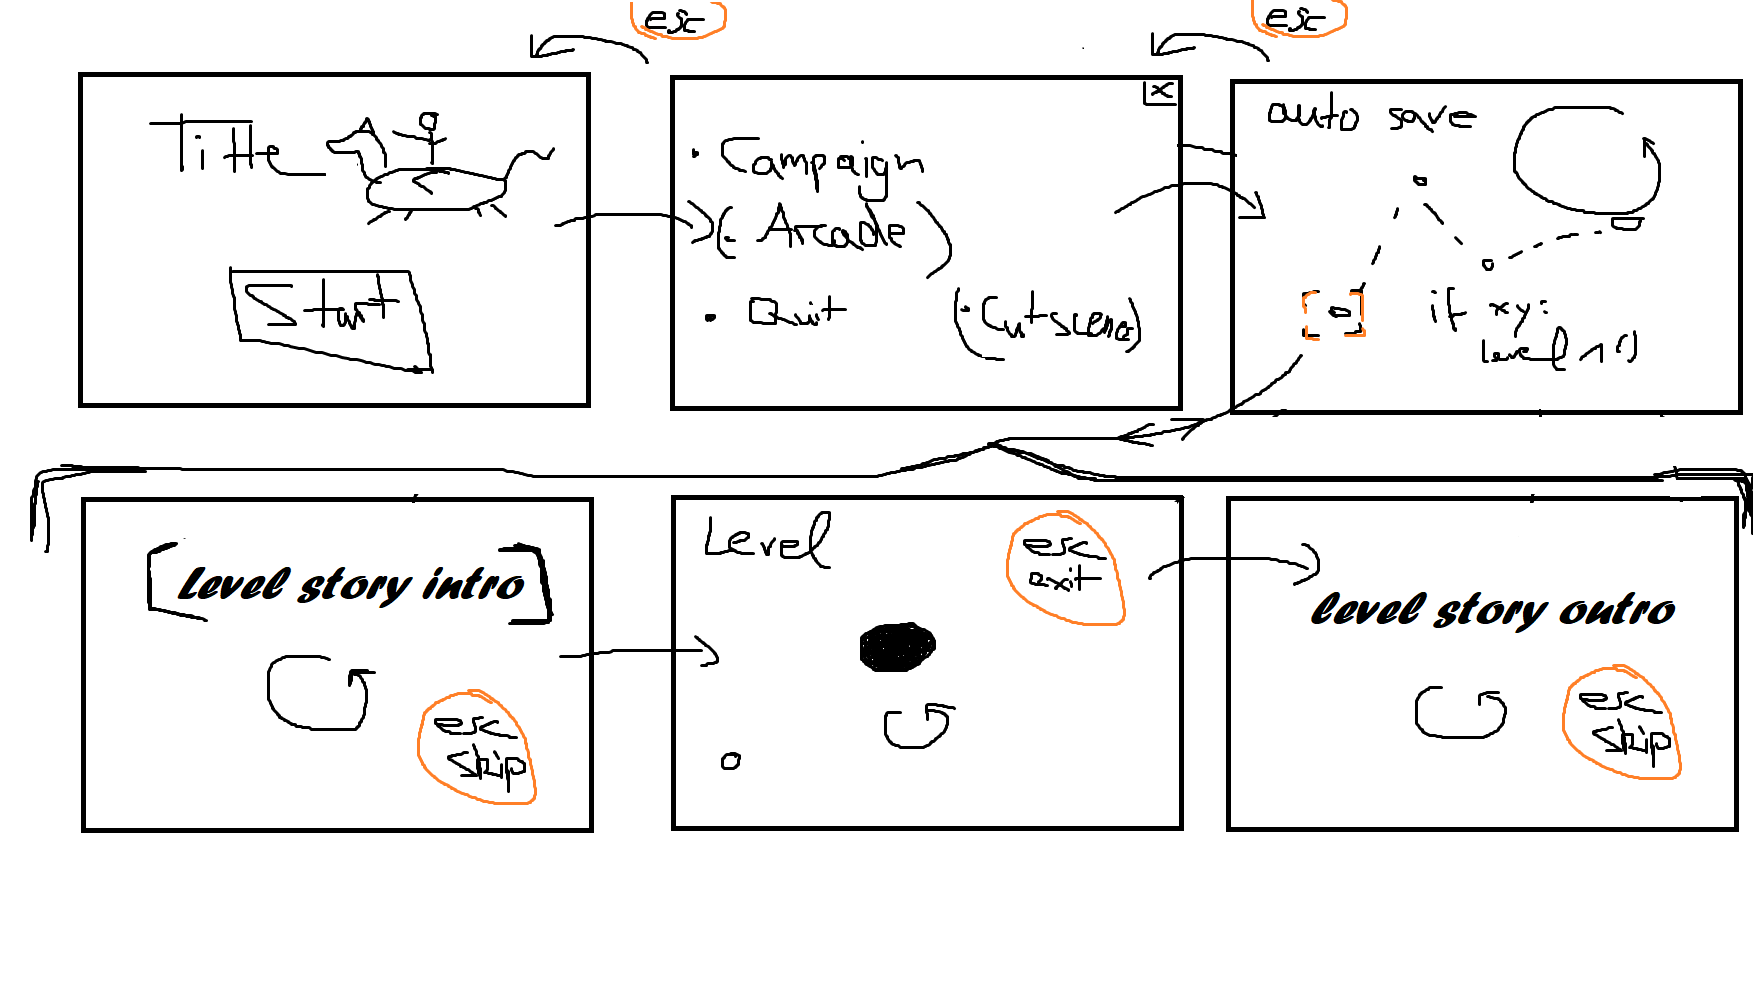 esc
esc
Title
Start
x
• Campaign
(• Arcade)
• Quit
(• Cutscene)
auto save
if xy:
level 1()
Level story intro
esc
skip
Level
esc
exit
level story outro
esc
skip